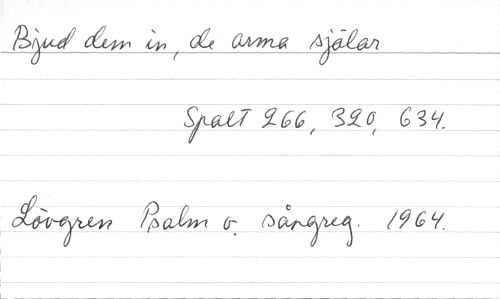 Bjud dem in, de arma själar
Spalt 266, 320, 634.
Lövgren Psalm o. sångreg. 1964.